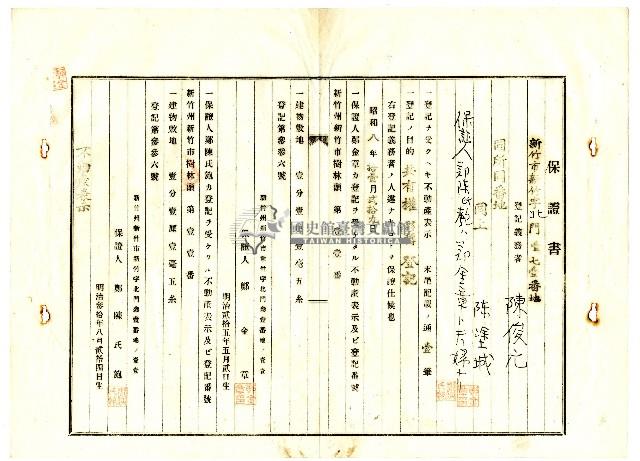 保證書
新竹市新竹字北門壹七壹番地
登記義務者
陳俊元
同所同番地
同上
陳塗城
保證人鄭陳氏鮑ハ鄭金章ト夫婦ナリ
一登記ヲ受クヘキ不動產表示 末尾記載ノ通壹筆
一登記ノ目的 共有權 登記
右登記義務者ノ人違ナキコトヲ保證仕候也
昭和八年拾壹月貳拾九日
一保證人鄭金章カ登記ヲ受ケタル不動產表示及ビ登記番號
新竹州新竹市樹林頭 第壹壹番
一建物敷地 壹分壹厘壹毫五糸
登記第參參六號
新竹州新竹市新竹字北門
保證人 鄭金章
明治貳拾五年五月貳日生
一保證人鄭陳氏鮑カ登記ヲ受ケタル不動產表示及ビ登記番號
新竹州新竹市樹林頭 第壹壹番
一建物敷地 壹分壹厘壹毫五糸
登記第參參六號
新竹州新竹市新竹字北門
保證人 鄭陳氏鮑
明治參拾年八月貳拾四日生
國史館臺灣文獻館
TAIWAN HISTORICA